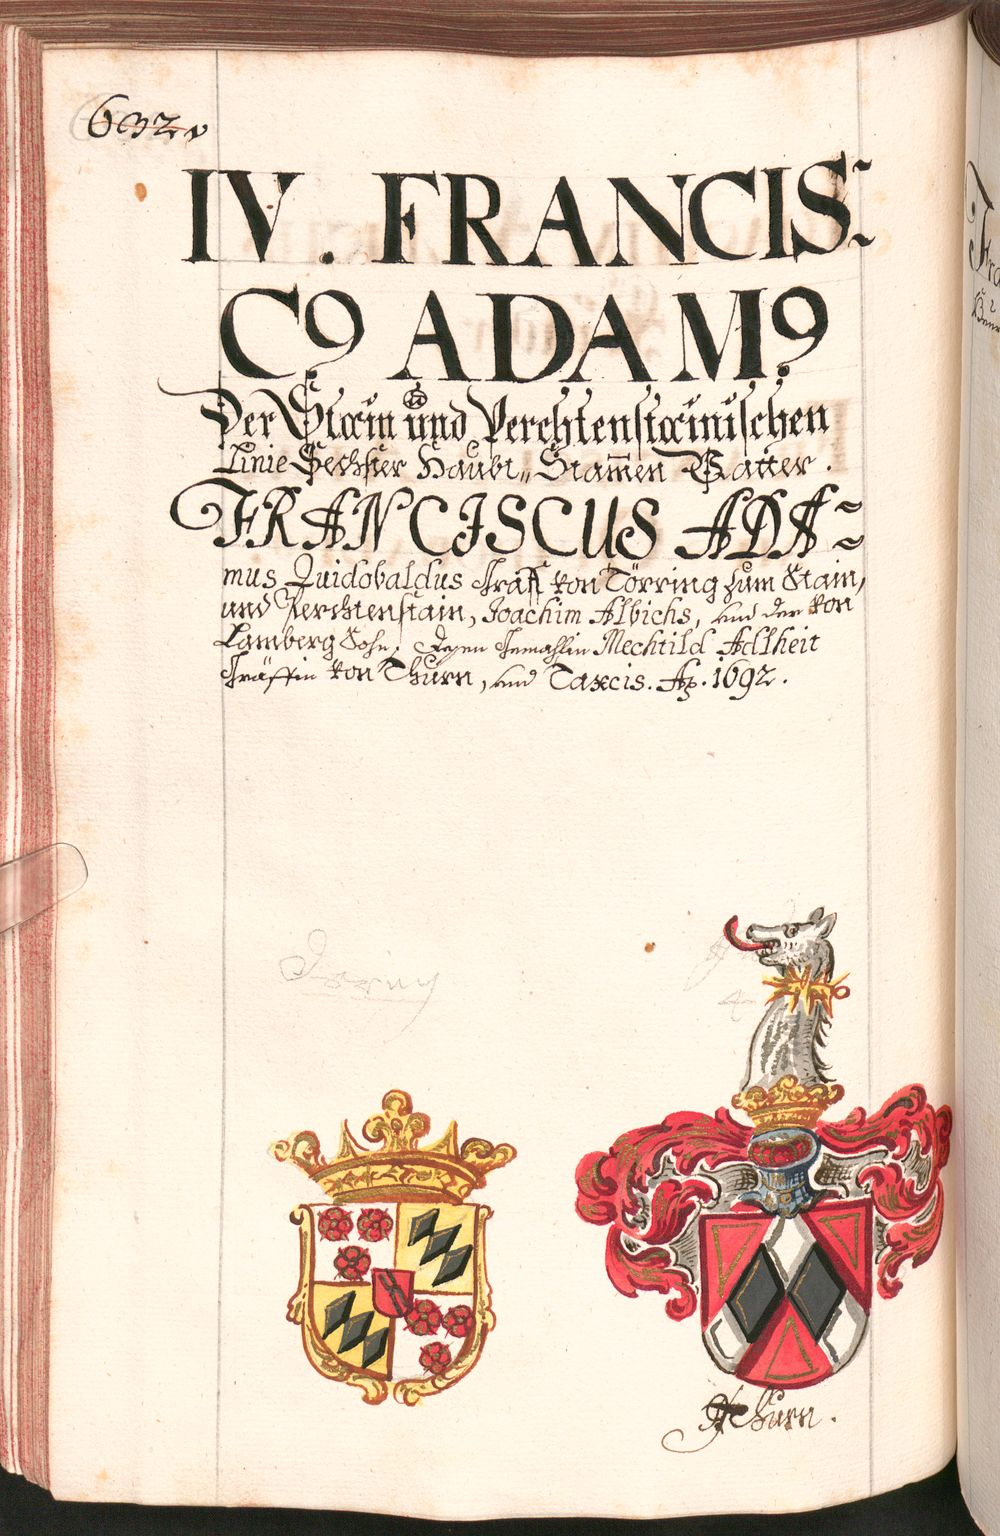 692.
IV. FRANCIS:
C9 ADAM9
Der Stain und Perchtenstainischen
Linie Sechster Haubt„ Stam̄en Vatter.
FRANCISCUS ADA=
mus Quidobaldus Graff von Törring zum Stain,
und Perchtenstain, Joachim Albichs, und der von
Lamberg Sohn. Deßen Gemahlin Mechtild Adlheit
Gräffin von Thurn, und Taxcis. Aō. 1692.
Törring
Thurn.